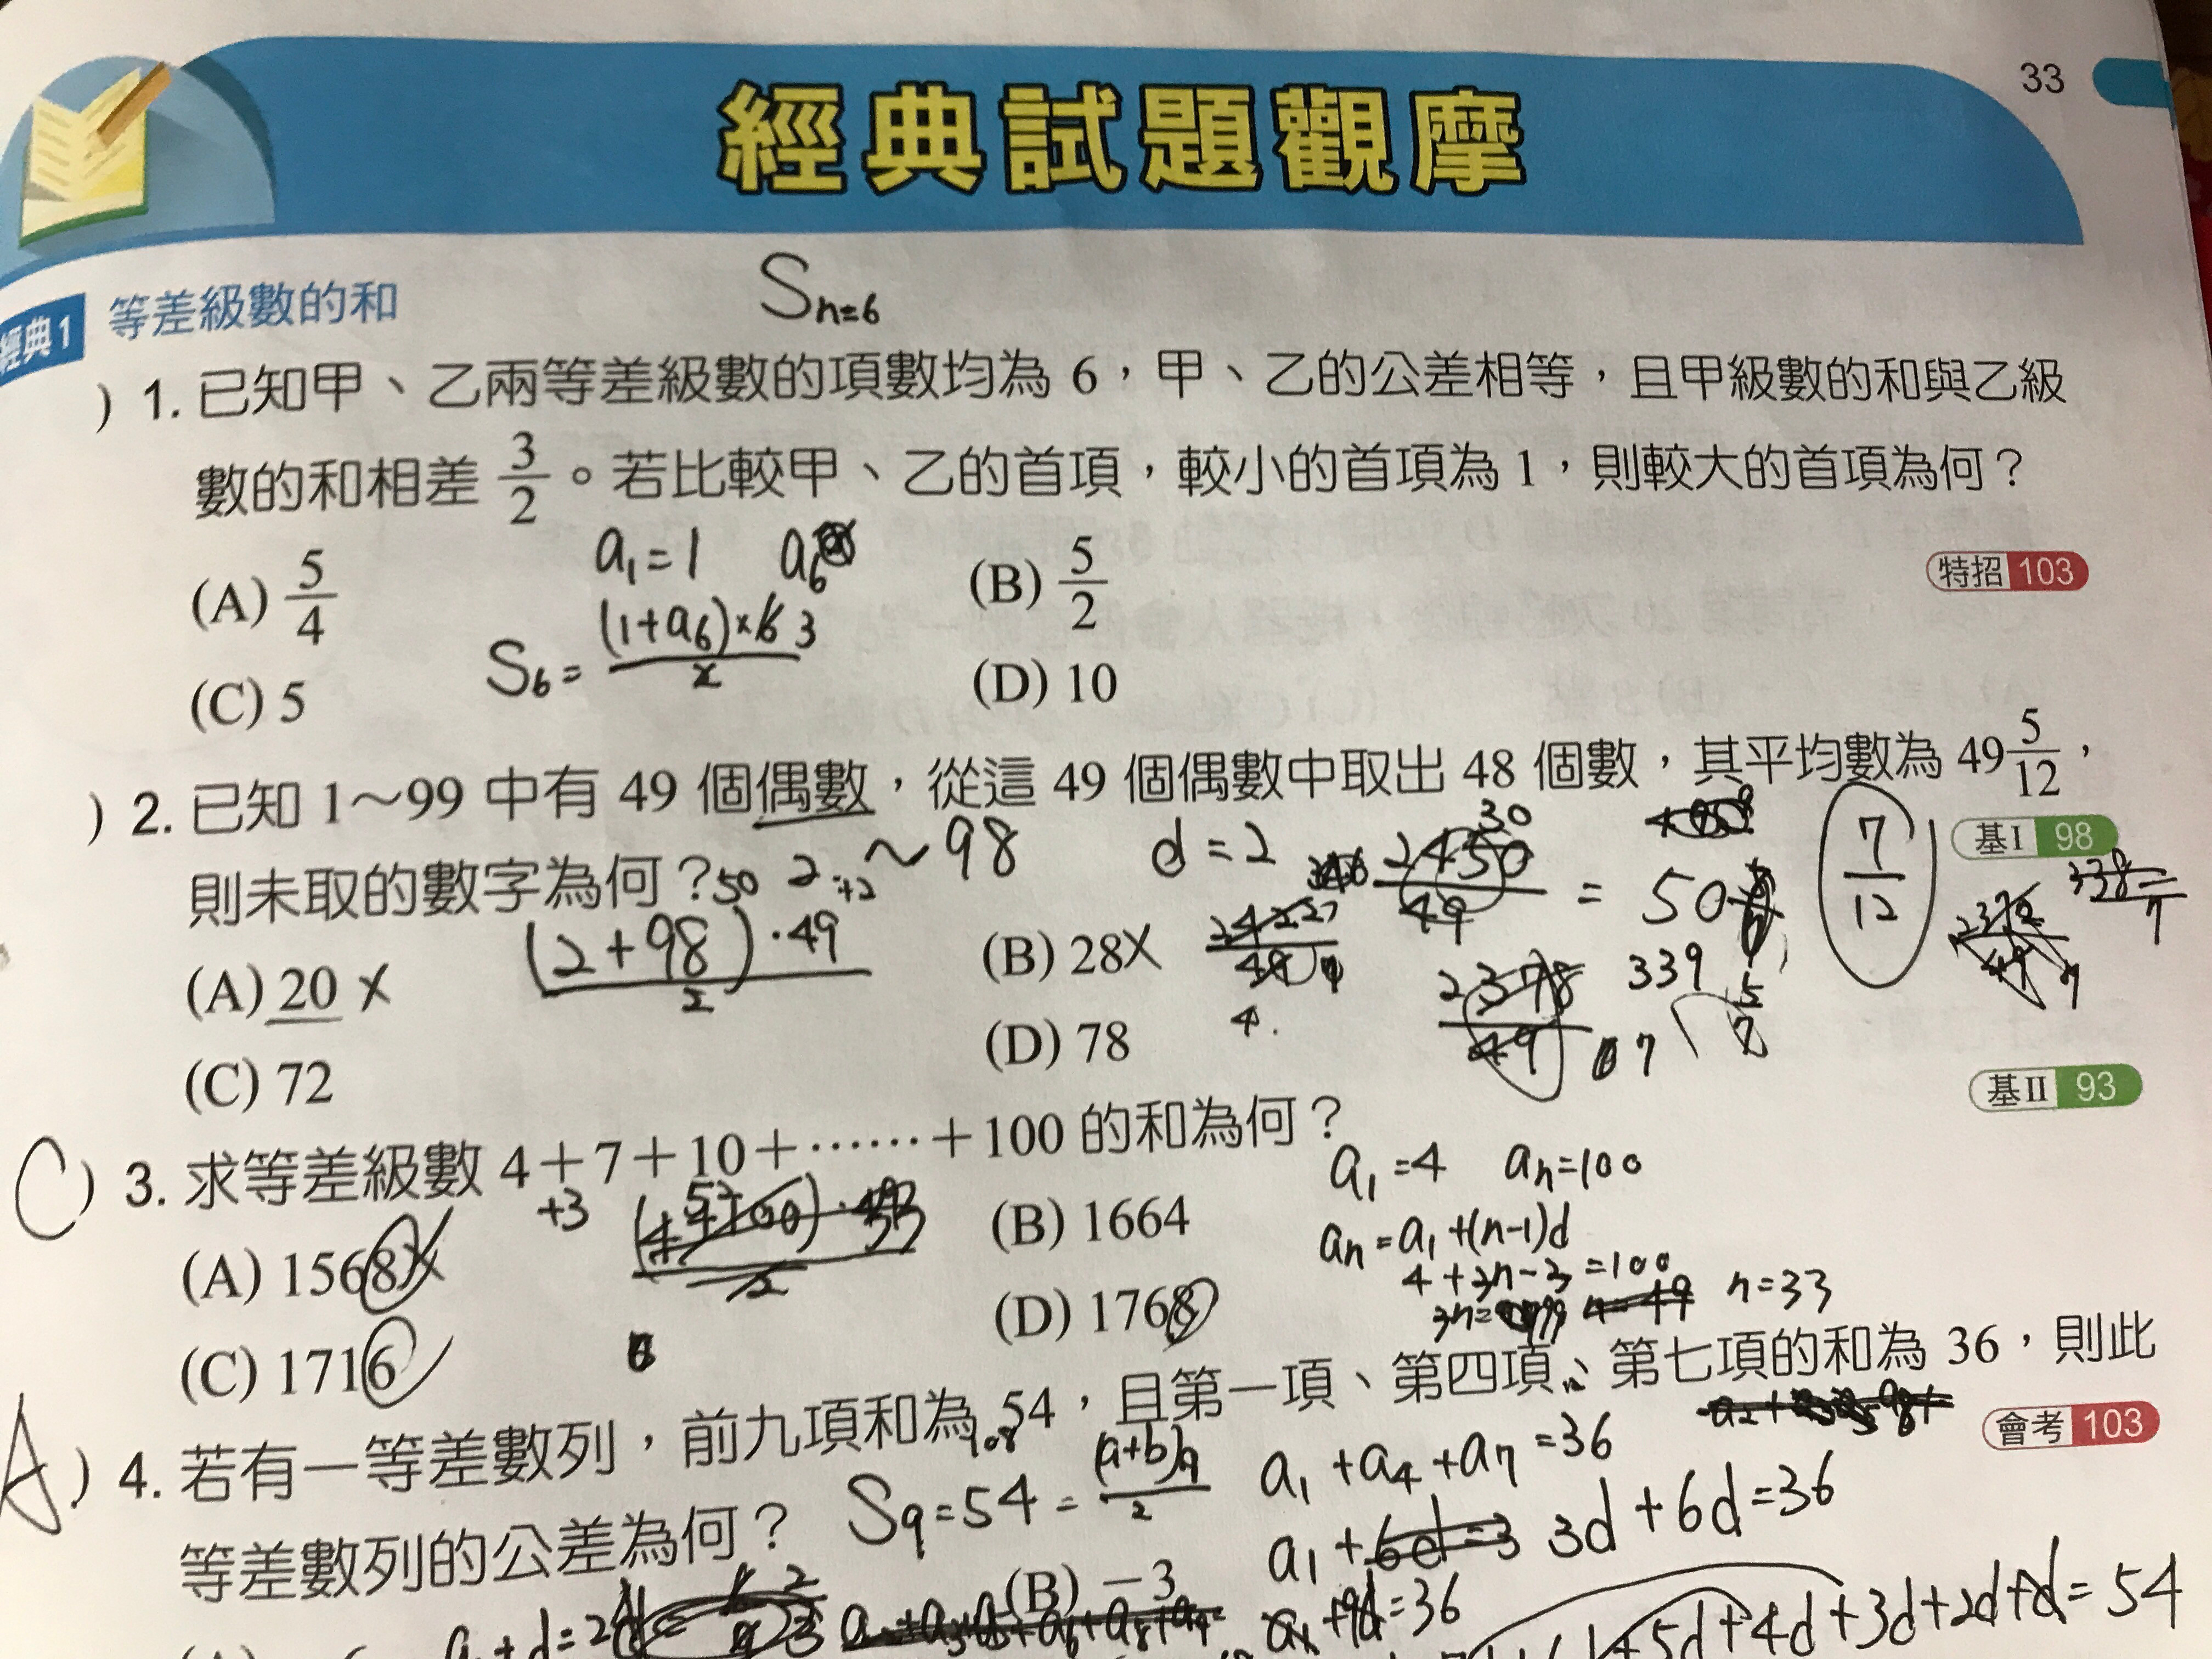 33
經典試題觀摩
經典1 等差級數的和
Sn=6
) 1. 已知甲、乙兩等差級數的項數均為 6，甲、乙的公差相等，且甲級數的和與乙級
數的和相差 3/2。若比較甲、乙的首項，較小的首項為 1，則較大的首項為何？
特招 103
(A) 5/4
(B) 5/2
a₁=1 a₆
S₆= (1+a₆)×6 3 / 2
(C) 5
(D) 10
) 2. 已知 1～99 中有 49 個偶數，從這 49 個偶數中取出 48 個數，其平均數為 49 5/12，
則未取的數字為何？
基I 98
50 2 +2 ~98 d=2
2450/49 = 50
30
7/12
(2+98)·49 / 2
(A) 20 ×
(B) 28×
2378/49
339
5/7
338
(C) 72
(D) 78
基II 93
C ) 3. 求等差級數 4＋7＋10＋……＋100 的和為何？
+3
a₁=4 an=100
an=a₁+(n-1)d
4+3n-3=100
n=33
(A) 1568×
(B) 1664
(C) 1716
(D) 1768
A ) 4. 若有一等差數列，前九項和為 54，且第一項、第四項、第七項的和為 36，則此
等差數列的公差為何？
會考 103
108
S9=54= (a+b)9 / 2
a₁+a₄+a₇=36
a₁+6d=3 3d+6d=36
(B) －3
+9d=36
+5d+4d+3d+2d+d=54